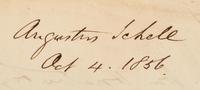 Augustus Schell
Oct 4. 1856.